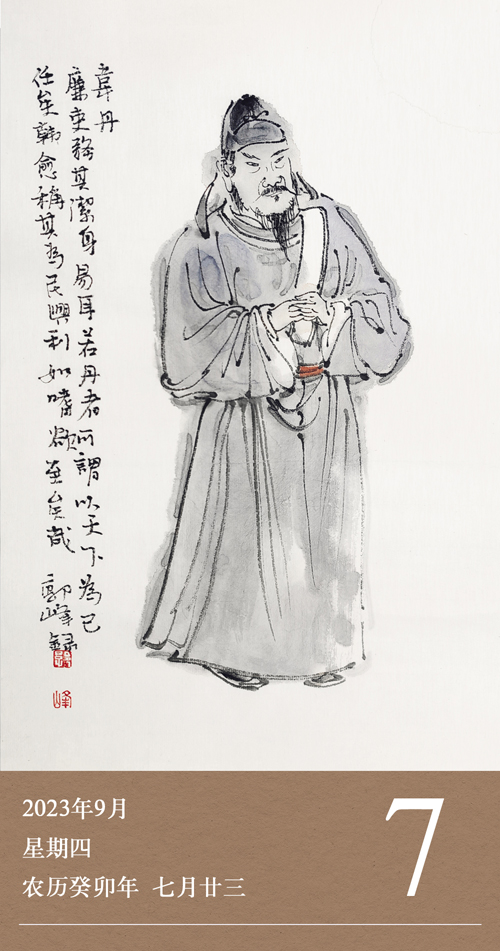 韋丹
廉吏務其潔身易耳若丹者所謂以天下為已
任矣韓愈稱其為民興利如嗜欲豈良哉
郭峰錄
峰
2023年9月
星期四
农历癸卯年 七月廿三
7